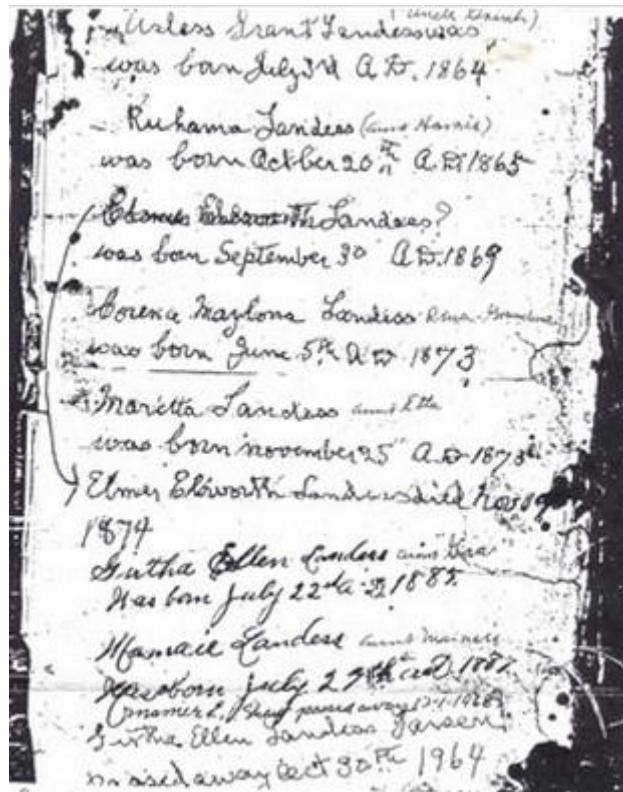 Ulless Grant Landess was
was born July 3rd A.D. 1864
Ruhama Landess (aunt Hamie)
was born Octber 20th A.D. 1865
Landess?
was born September 30 A.D. 1869
Corena Maylona Landess
was born June 5th A D 1873
Marietta Landess aunt Etta
was born november 25 A.D 1875
Elmer Elsworth Landess died Nov
1874
Gutha Ellen Landess aunt
Was born July 22nd A D 188
Mamaie Landess aunt
Was born July 27th A D 188
passed away 12-1-1968
Gutha Ellen Landess Larsen
passed away Oct 30th 1964